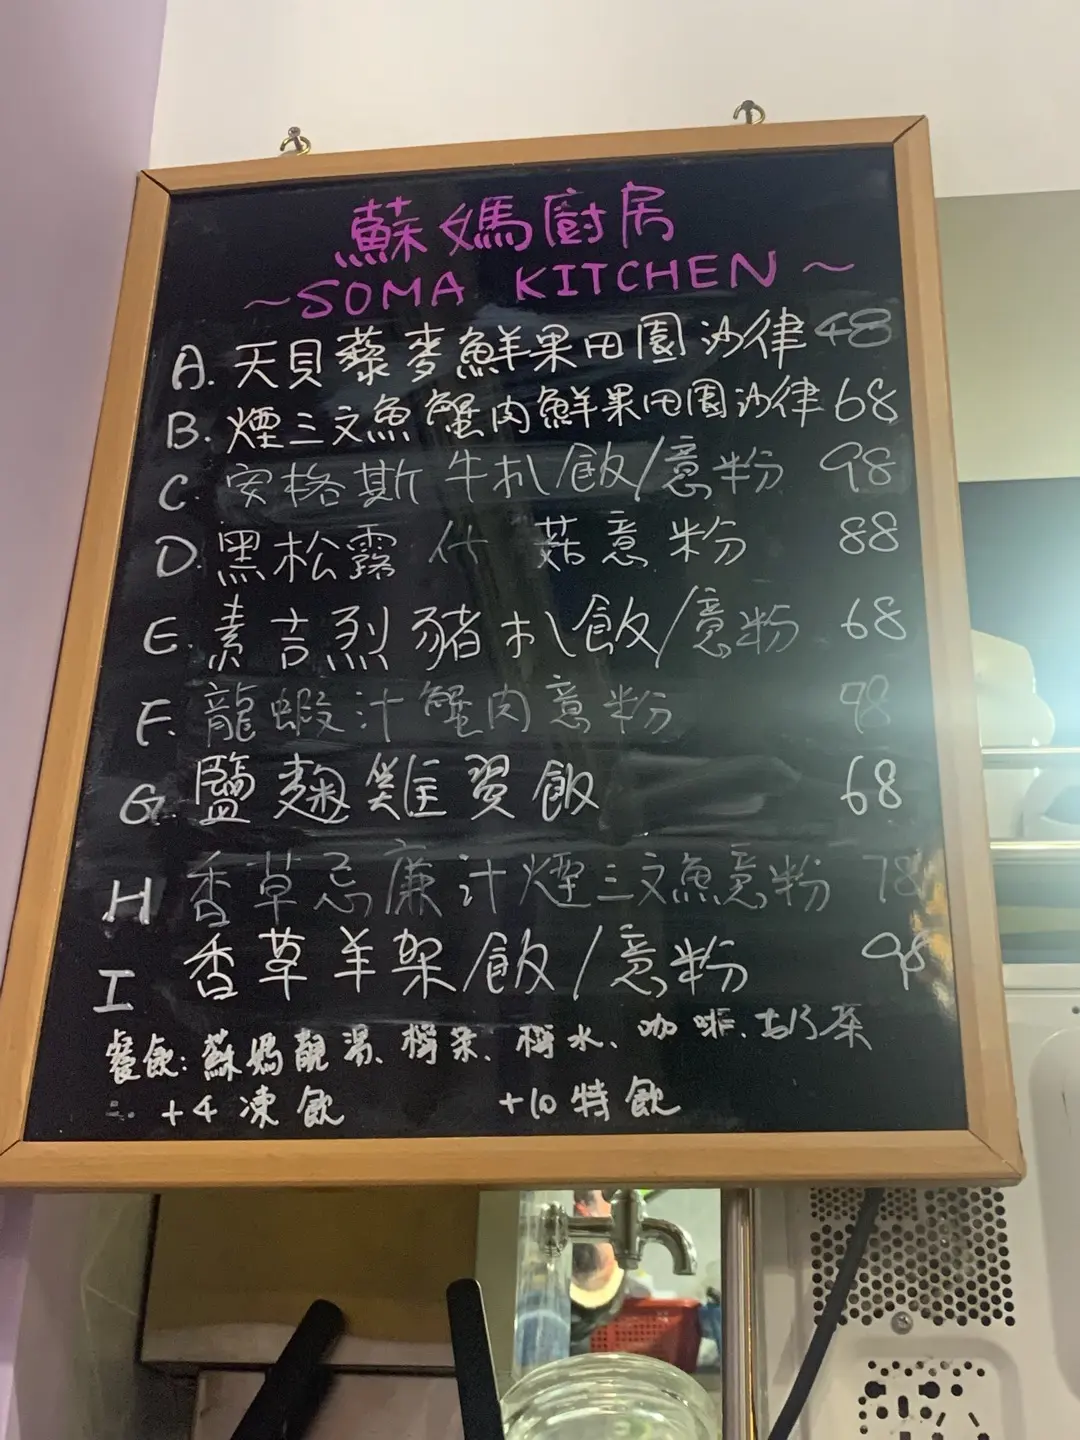 蘇媽廚房
~SOMA KITCHEN~
A. 天貝藜麥鮮果田園沙律 48
B. 煙三文魚蟹肉鮮果田園沙律 68
C. 安格斯牛扒飯/意粉 98
D. 黑松露什菇意粉 88
E. 素吉烈豬扒飯/意粉 68
F. 龍蝦汁蟹肉意粉 98
G. 鹽麴雞翼飯 68
H 香草忌廉汁煙三文魚意粉 78
I 香草羊架飯/意粉 98
餐飲: 蘇媽靚湯、檸茶、檸水、咖啡、奶茶
+4 凍飲 +10 特飲